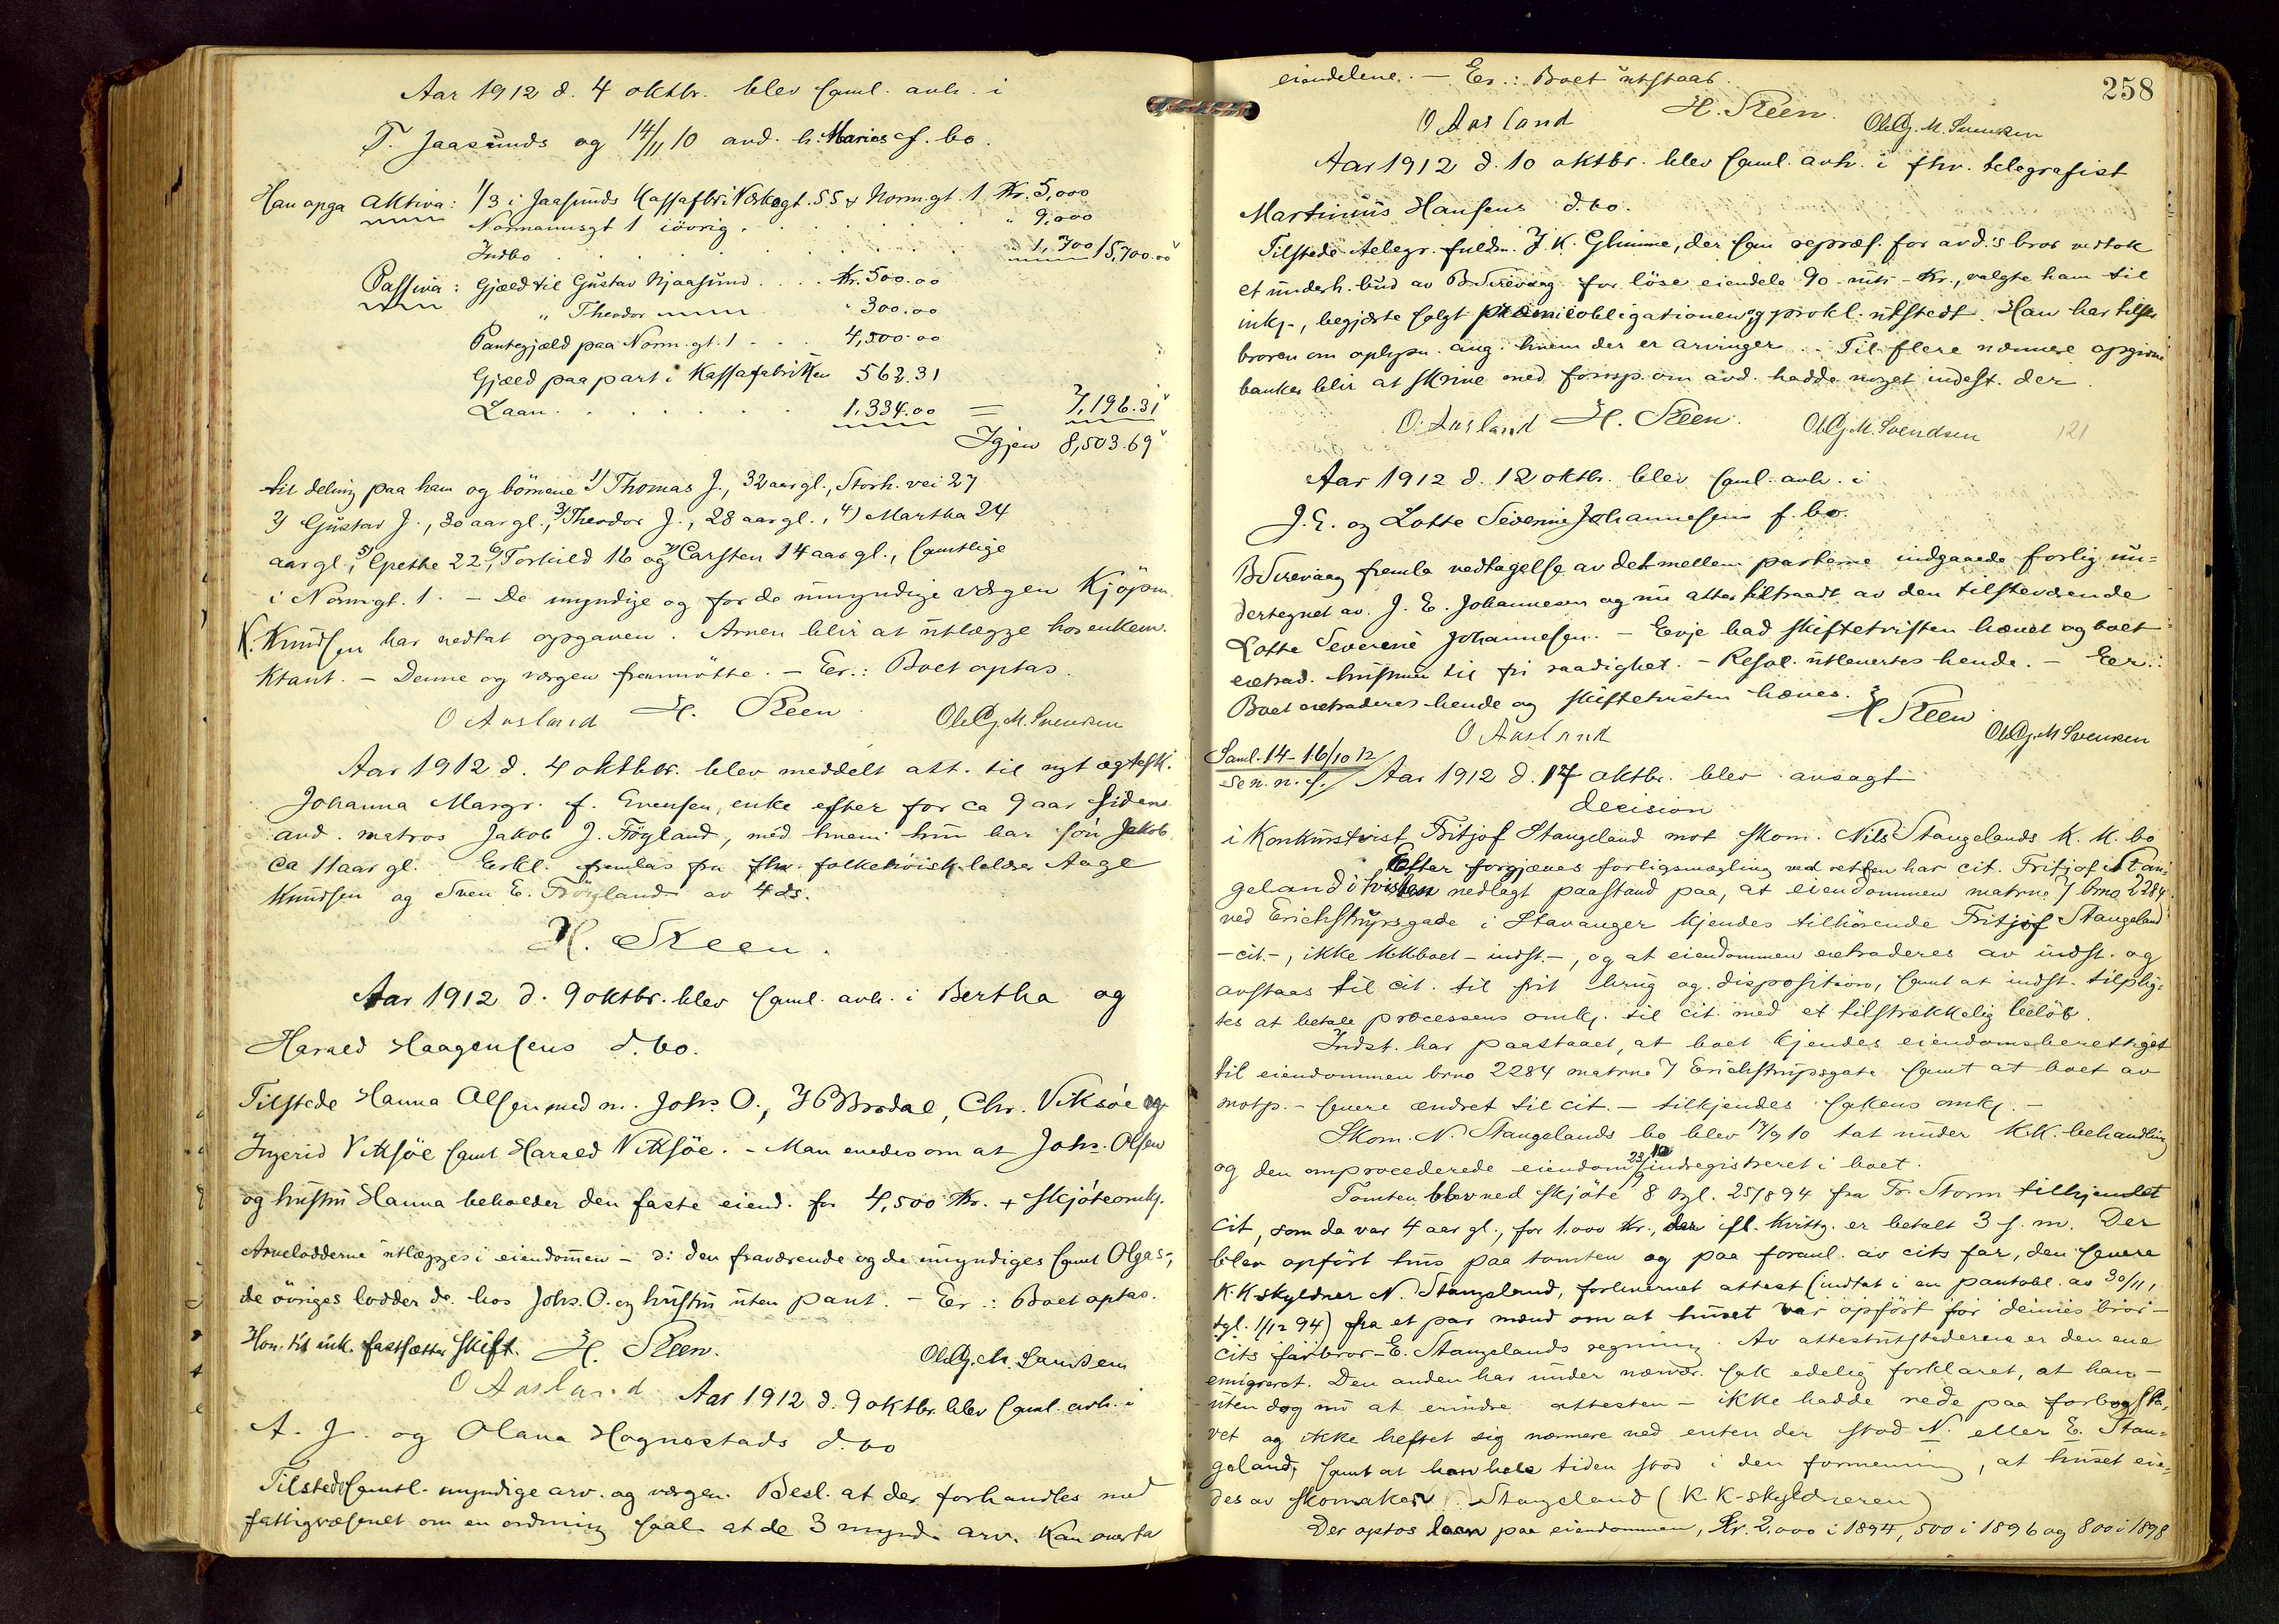 Aar 1912 d. 4 oktbr. blev saml. avh. i
T. Jaasunds og 14/11 10 avd. h. Maries f. bo.
Han opga Aktiva: 1/3 i Jaasunds Kassafbr. Verksgt. 55 & Norm.gt. 1 Kr. 5,000
Normannsgt 1 iövrig . . . . . . . " 9,000
Indbo . . . . . . . . . " 1,700 15,700.00
Passiva: Gjæld til Gustav Njaasund . . . . Kr. 500.00
" Theodor " 300.00
Pantegjæld paa Norm.gt. 1 - . . 4,500.00
Gjæld paa part i Kassafabrikken 562.31
Laan . . . . . . . 1,334.00 = 7,196.31
Igjen 8,503.69
til deling paa ham og børnene 1) Thomas J., 32 aar gl., Storh. vei 27
2) Gustav J., 30 aar gl., 3) Theodor J., 28 aar gl., 4) Martha 24
aar gl., 5) Grethe 22, 6) Torkild 16 og 7) Carsten 14 aar gl., samtlige
i Norm.gt. 1. - De myndige og for de umyndige værgen Kjöpm.
K. Knudsen har vedtat opgaven. Arven blir at utlægge hos enkem.
Ktant. - Denne og værgen fremmötte. - Er.: Boet optas.
O Aasland H. Steen Ole Gj. M. Svendsen
Aar 1912 d. 4 oktbr. blev meddelt att. til nyt ægtesk.
Johanna Margr. f. Evensen, enke efter for ca 9 aar siden
avd. matros Jakob J. Tröyland, med hvem hun har sön Jakob
ca 11 aar gl. Erkl. fremlas fra fhv. folkehöisk. Aage
Knudsen og Sven E. Tröyland av 4 ds.
H. Steen.
Aar 1912 d. 9 oktbr. blev saml. avh. i Bertha og
Harald Haagensens d. bo.
Tilstede Hanna Olsen med m. Johs O., Chr. Viksöe og
Ingerid Viksöe samt Harald Viksöe. - Man enedes om at Johs. Olsen
og hustru Hanna beholder den faste eiend. for 4,500 Kr. + skjöteomk.
Arvelodderne utlægges i eiendommen - ɔ: den fraværende og de umyndiges samt Olgas -,
de övriges lodder do. hos Johs. O. og hustru uten pant. - Er.: Boet optas.
Hon. til ink. fastsættes skift. H. Steen.
O Aasland Ole Gj. M. Svendsen
Aar 1912 d. 9 oktbr. blev saml. avh. i
A. J. og Olana Hognestads d. bo
Tilstede samtl. myndige arv. og værgen. Besl. at der forhandles med
fattigvæsenet om en ordning saal. at de 3 mynd. arv. kan overta
258
eiendelene. - Er.: Boet utstaar.
O Aasland H. Steen. Ole Gj. M. Svendsen
Aar 1912 d. 10 oktbr. blev saml. avh. i fhv. telegrafist
Martinius Hansens d. bo.
Tilstede telegr. fuldm. J. K. Glimme, der som repræs. for avd.'s bror vedtok
et underh. bud av B. Sirevaag for löse eiendele 90 - niti - Kr., valgte ham til
ink., begjærte solgt præmieobligationen og prokl. utstedt. Han har tilskr.
broren om oplysn. ang. hvem der er arvinger. Til flere nævnte opgivne
banker blir at skrive med foresp. om avd. hadde noget indest. der.
O. Aasland H. Steen. Ole Gj. M. Svendsen 121
Aar 1912 d. 12 oktbr. blev saml. avh. i
J. E. og Lotte Severine Johannesens f. bo.
B. Sirevaag fremla vedtagelse av det mellem parterne indgaaede forlig un-
dertegnet av J. E. Johannesen og nu atter tiltraadt av den tilstedeværende
Lotte Severine Johannesen. - Evje bad skiftetvisten hævet og boet
extrad. hustruen til fri raadighet. - Resol. utleveres hende. - Er.:
Boet extraderes hende og skiftetvisten hæves.
O Aasland H Steen Ole Gj. M Svendsen
Saml. 14-16/10 12
se n. n. f.
Aar 1912 d. 17 oktbr. blev avsagt
decision
i Konkurstvist Fritjof Stangeland mot skom. Nils Stangelands K. K. bo
Efter forgjæves forligsmægling ved retten har cit. Fritjof Stan-
geland i tvisten nedlagt paastand paa, at eiendommen matrno 7 brno 2284
ved Erichstrupsgade i Stavanger kjendes tilhörende Fritjof Stangeland
- cit. -, ikke KKboet - indst. -, og at eiendommen extraderes av indst. og
avstaas til cit. til frit brug og disposition, samt at indst. tilplig-
tes at betale processens omk. til cit. med et tilstrækkelig belöb.
Indst. har paastaaet, at boet kjendes eiendomsberettiget
til eiendommen brno 2284 matrno 7 Erichstrupsgate samt at boet av
motp. - senere ændret til cit. - tilkjendes sakens omk. -
Skom. N. Stangelands bo blev 17/9 10 tat under K.K. behandling
og den omprocederede eiendom 23/9 10 indregistreret i boet.
Tomten blev ved skjöte 8 tgl. 25/8 94 fra Fr. Storm tilkjendet
cit, som da var 4 aar gl., for 1.000 Kr., der ifl. kvittg. er betalt 3 s. m. Der
blev opfört hus paa tomten og paa foranl. av cits far, den senere
K.K skyldner N. Stangeland, forlevernet attest (indtat i en pantobl. av 30/11,
tgl. 1/12 94) fra et par mænd om at huset var opfört for dennes bror -
cits farbror - E. Stangelands regning. Av attestutstederene er den ene
emigreret. Den anden har under nærvr. sak edelig forklaret, at han -
uten dog nu at erindre attesten - ikke hadde rede paa forbogsta-
vet og ikke heftet sig nærmere ved enten der stod N. eller E. Stan-
geland, samt at han hele tiden stod i den formening, at huset eie-
des av skomaker Stangeland (K K-skyldneren)
Der optos laan paa eiendommen, Kr. 2,000 i 1894, 500 i 1896 og 800 i 1898